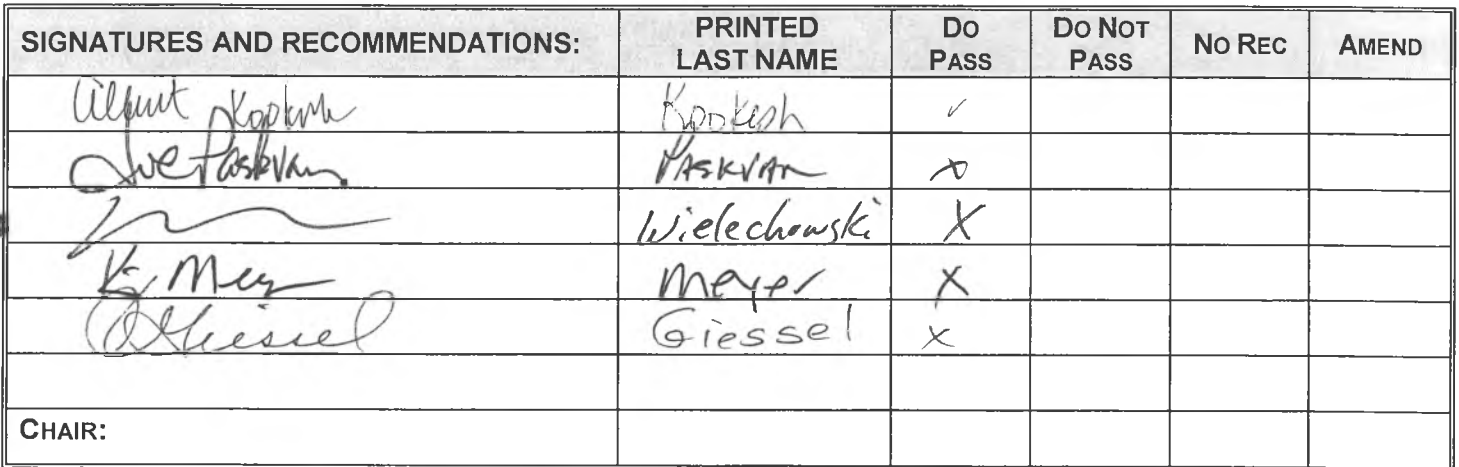 SIGNATURES AND RECOMMENDATIONS: PRINTED LAST NAME DO PASS DO NOT PASS NO REC AMEND
Kookesh ✓
Joe Paskvan PASKVAN X
Wielechowski X
Meyer X
Giessel X
CHAIR: